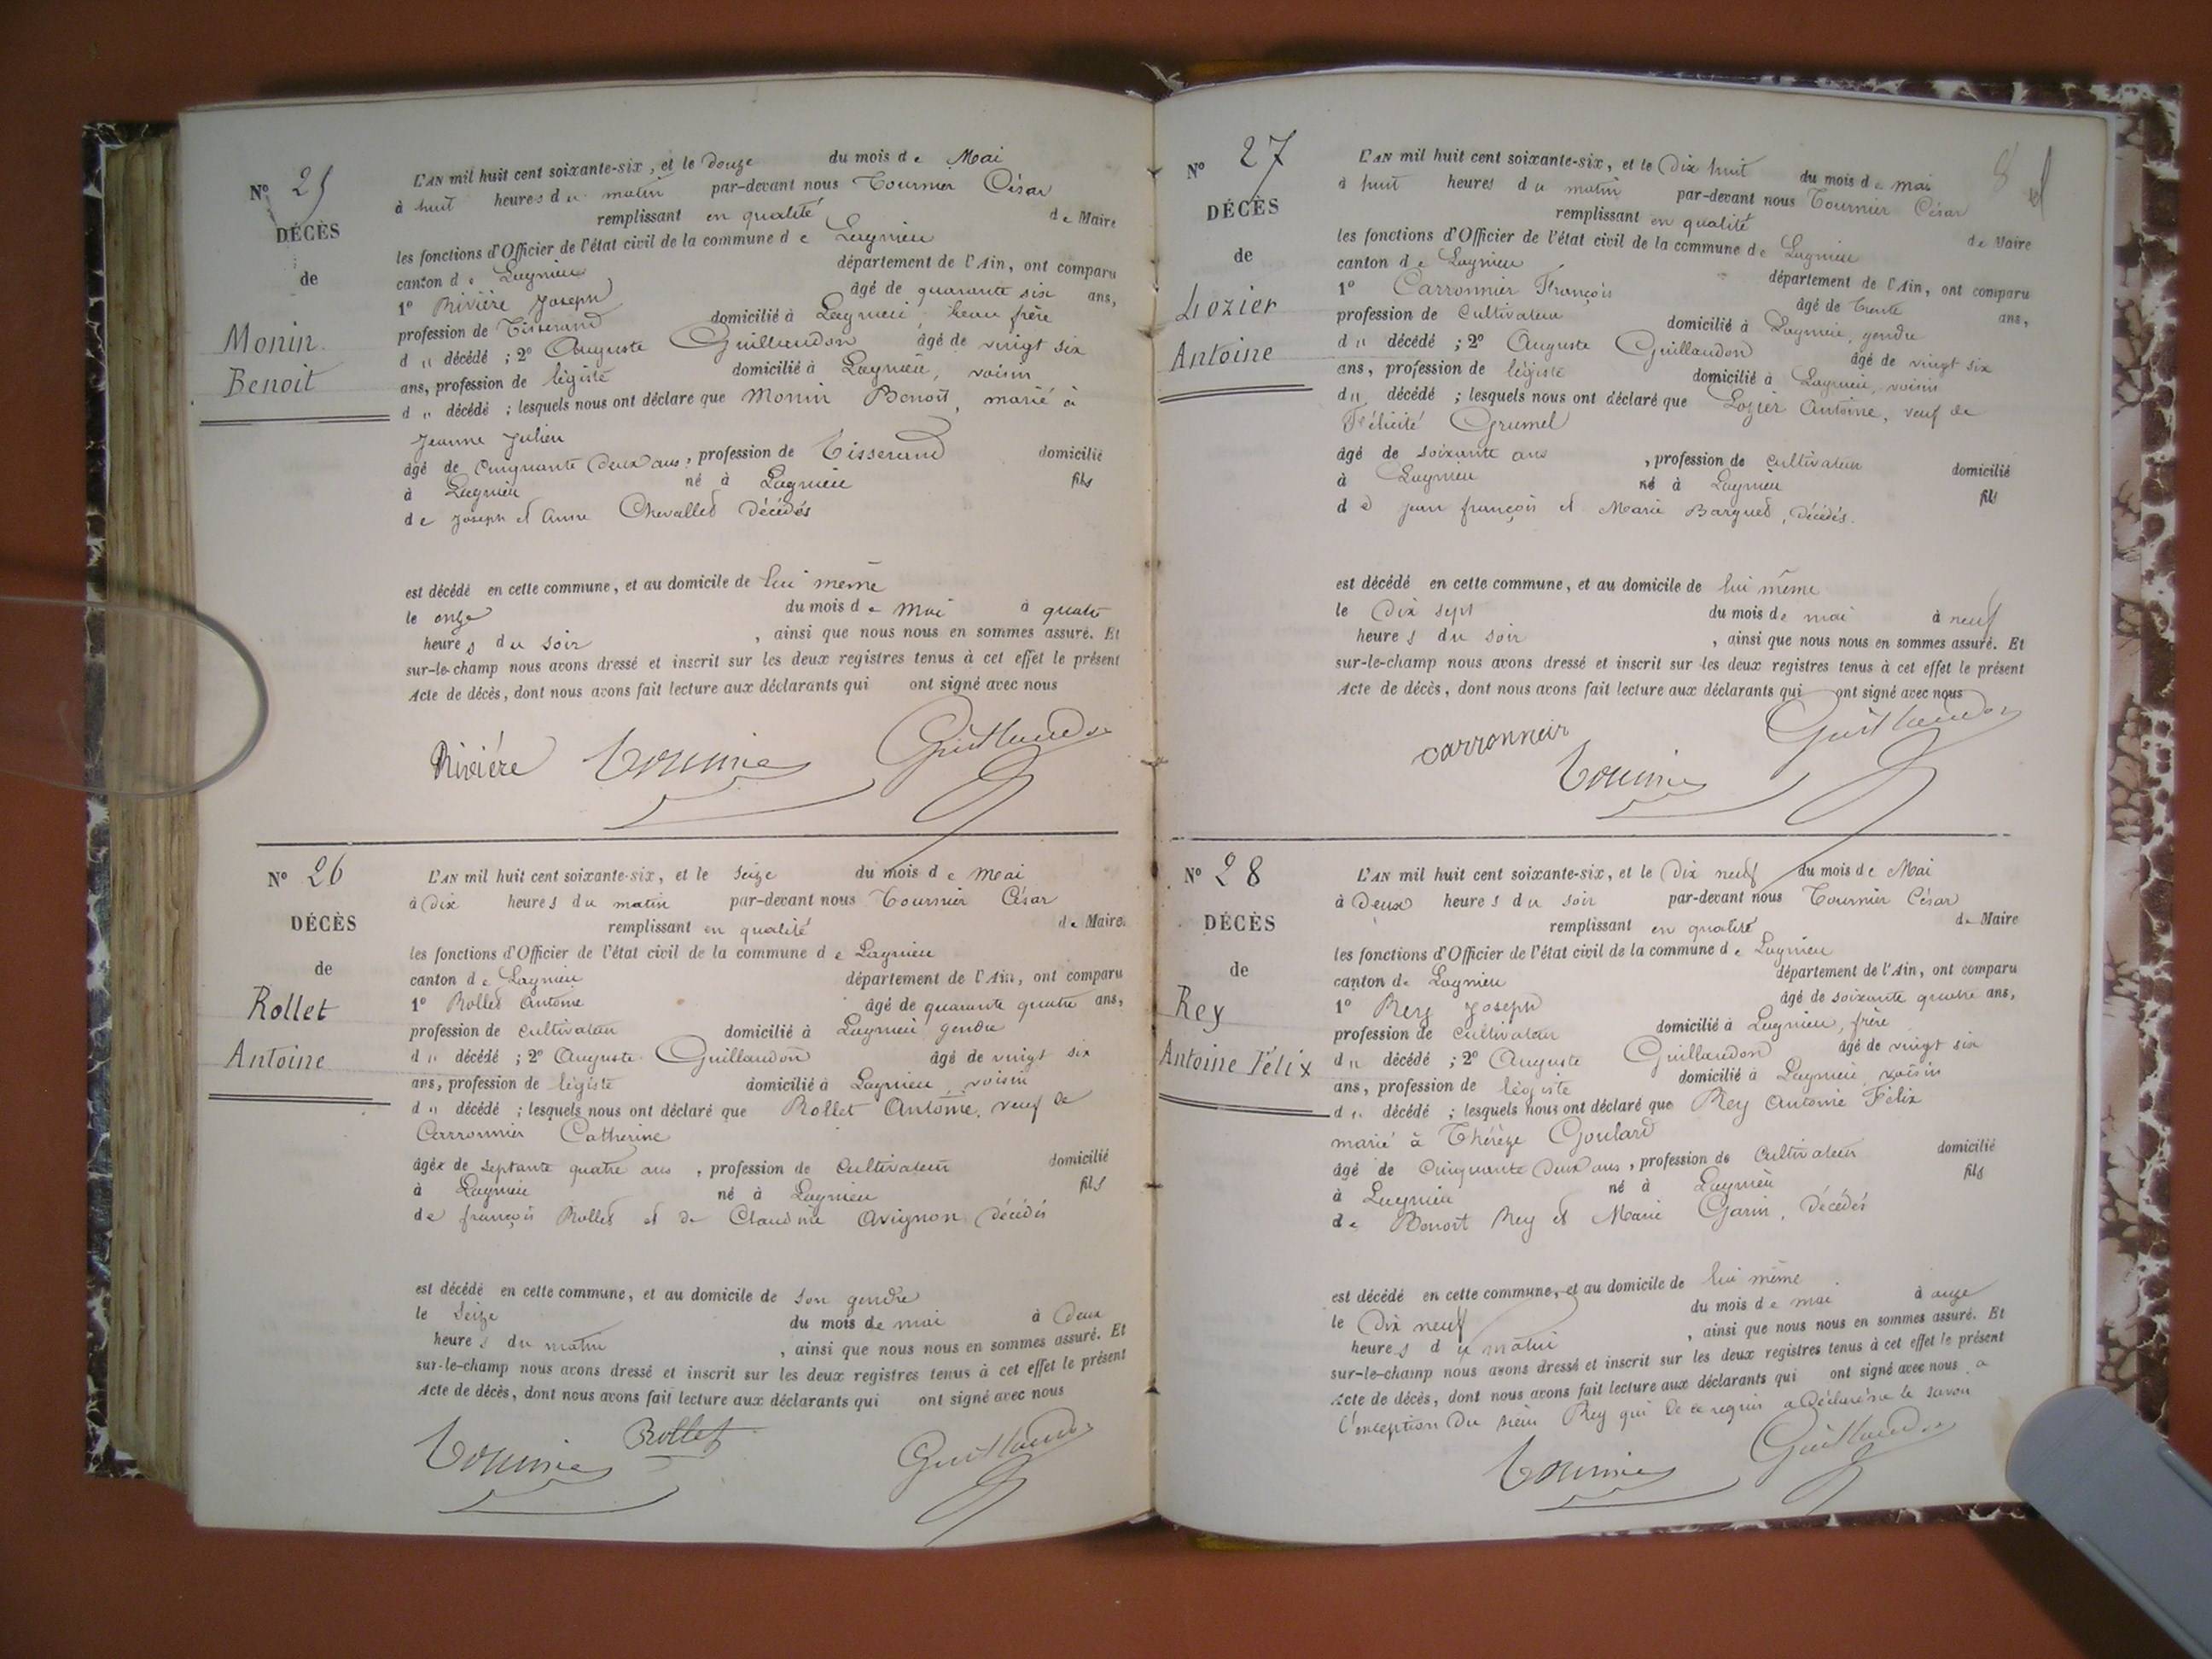 N° 25
DÉCÈS
de
Monin
Benoit
L'AN mil huit cent soixante-six, et le douze du mois de Mai
à huit heures du matin par-devant nous Tournier César
remplissant en qualité de Maire
les fonctions d'Officier de l'état civil de la commune de Lagnieu
canton de Lagnieu département de l'Ain, ont comparu
1° Rivière Joseph âgé de quarante six ans,
profession de Tisserand domicilié à Lagnieu, beau frère
du décédé ; 2° Auguste Guillaudon âgé de vingt six
ans, profession de légiste domicilié à Lagnieu, voisin
du décédé ; lesquels nous ont déclaré que Monin Benoit, marié à
Jeanne Julien
âgé de cinquante deux ans, profession de Tisserand domicilié
à Lagnieu né à Lagnieu fils
de Joseph et Anne Chevallet décédés
est décédé en cette commune, et au domicile de lui même
le onze du mois de Mai à quatre
heures du soir, ainsi que nous nous en sommes assuré. Et
sur-le-champ nous avons dressé et inscrit sur les deux registres tenus à cet effet le présent
Acte de décès, dont nous avons fait lecture aux déclarants qui ont signé avec nous
Rivière Tournier Guillaudon
N° 26
DÉCÈS
de
Rollet
Antoine
L'AN mil huit cent soixante-six, et le seize du mois de Mai
à dix heures du matin par-devant nous Tournier César
remplissant en qualité de Maire
les fonctions d'Officier de l'état civil de la commune de Lagnieu
canton de Lagnieu département de l'Ain, ont comparu
1° Rollet Antoine âgé de quarante quatre ans,
profession de cultivateur domicilié à Lagnieu gendre
du décédé ; 2° Auguste Guillaudon âgé de vingt six
ans, profession de légiste domicilié à Lagnieu, voisin
du décédé ; lesquels nous ont déclaré que Rollet Antoine, veuf de
Carronnier Catherine
âgé de septante quatre ans, profession de Cultivateur domicilié
à Lagnieu né à Lagnieu fils
de françois Rollet et de Claudine Avignon décédés
est décédé en cette commune, et au domicile de son gendre
le seize du mois de mai à deux
heures du matin, ainsi que nous nous en sommes assuré. Et
sur-le-champ nous avons dressé et inscrit sur les deux registres tenus à cet effet le présent
Acte de décès, dont nous avons fait lecture aux déclarants qui ont signé avec nous
Tournier Rollet Guillaudon
N° 27
DÉCÈS
de
Lozier
Antoine
L'AN mil huit cent soixante-six, et le dix huit du mois de mai
à huit heures du matin par-devant nous Tournier César
remplissant en qualité de Maire
les fonctions d'Officier de l'état civil de la commune de Lagnieu
canton de Lagnieu département de l'Ain, ont comparu
1° Carronnier François âgé de trente ans,
profession de Cultivateur domicilié à Lagnieu, gendre
du décédé ; 2° Auguste Guillaudon âgé de vingt six
ans, profession de légiste domicilié à Lagnieu, voisin
du décédé ; lesquels nous ont déclaré que Lozier Antoine, veuf de
Félicité Grumel
âgé de soixante ans, profession de cultivateur domicilié
à Lagnieu né à Lagnieu fils
de jean françois et Marie Barquet, décédés.
est décédé en cette commune, et au domicile de lui même
le dix sept du mois de mai à neuf
heures du soir, ainsi que nous nous en sommes assuré. Et
sur-le-champ nous avons dressé et inscrit sur les deux registres tenus à cet effet le présent
Acte de décès, dont nous avons fait lecture aux déclarants qui ont signé avec nous
carronneir Tournier Guillaudon
N° 28
DÉCÈS
de
Rey
Antoine Félix
L'AN mil huit cent soixante-six, et le dix neuf du mois de Mai
à deux heures du soir par-devant nous Tournier César
remplissant en qualité de Maire
les fonctions d'Officier de l'état civil de la commune de Lagnieu
canton de Lagnieu département de l'Ain, ont comparu
1° Rey Joseph âgé de soixante quatre ans,
profession de cultivateur domicilié à Lagnieu, frère
du décédé ; 2° Auguste Guillaudon âgé de vingt six
ans, profession de légiste domicilié à Lagnieu, voisin
du décédé ; lesquels nous ont déclaré que Rey Antoine Félix
marié à Thérèze Goulard
âgé de cinquante deux ans, profession de Cultivateur domicilié
à Lagnieu né à Lagnieu fils
de Benoit Rey et Marie Garin, décédés
est décédé en cette commune, et au domicile de lui même
le dix neuf du mois de mai à onze
heures du matin, ainsi que nous nous en sommes assuré. Et
sur-le-champ nous avons dressé et inscrit sur les deux registres tenus à cet effet le présent
Acte de décès, dont nous avons fait lecture aux déclarants qui ont signé avec nous à
l'exception du sieur Rey qui de ce requis a déclaré ne le savoir
Tournier Guillaudon